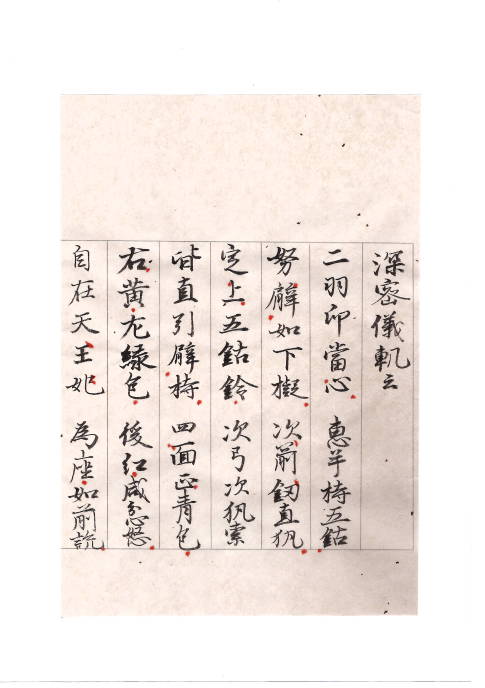 深密儀軌云
二羽印當心 惠手持五鈷
努臂如下擬 次箭釼直執
定上五鈷鈴 次弓次執索
皆直引臂持 四面正青色
右黄左緑色 後紅咸忿怒
自在天王妃 為座如前説